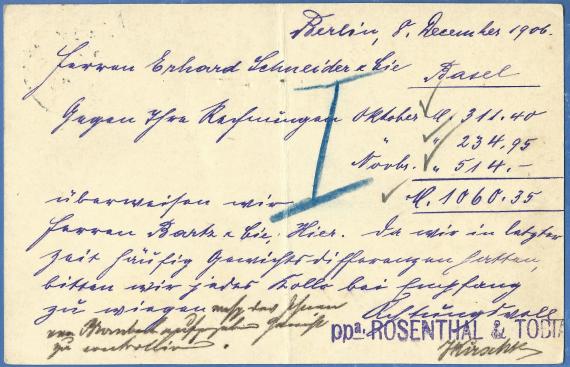 Berlin, 8. December 1906.
Herren Erhard Schneider & Cie
Basel
Gegen Ihre Rechnungen Oktober M. 311.40
" 234.95
Novbr. " 514.-
M. 1060.35
überweisen wir
Herren Bartz & Cie, Hier. Da wir in letzter
Zeit häufig Gewichtsdifferenzen hatten,
bitten wir jedes Kollo bei Empfang
zu wiegen resp. das Ihnen
Achtungsvoll
Gewicht
zu controlliren.
ppa. ROSENTHAL & TOBIA